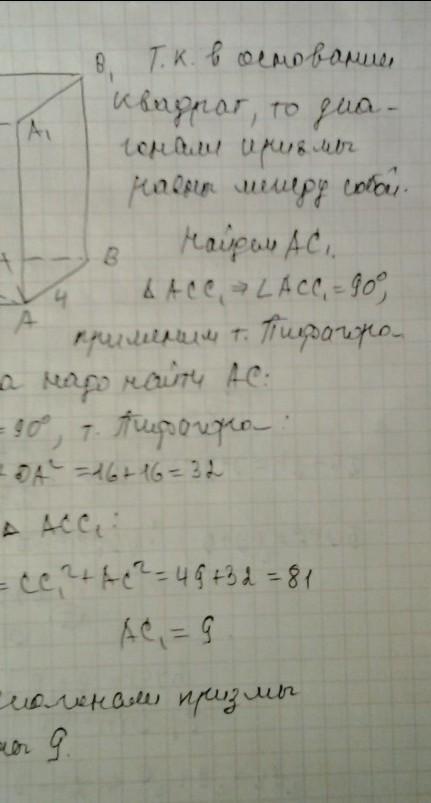 B₁ Т.к. в основании
квадрат, то диа-
A₁
гонали призмы
равны между собой.
Найдём AC₁.
B
4
A
△ACC₁ ⇒ ∠ACC₁ = 90°,
применим т. Пифагора
а надо найти AC:
= 90°, т. Пифагора:
+ DA² = 16+16 = 32
△ ACC₁:
= CC₁² + AC² = 49+32 = 81
AC₁ = 9
диагонали призмы
ны 9.